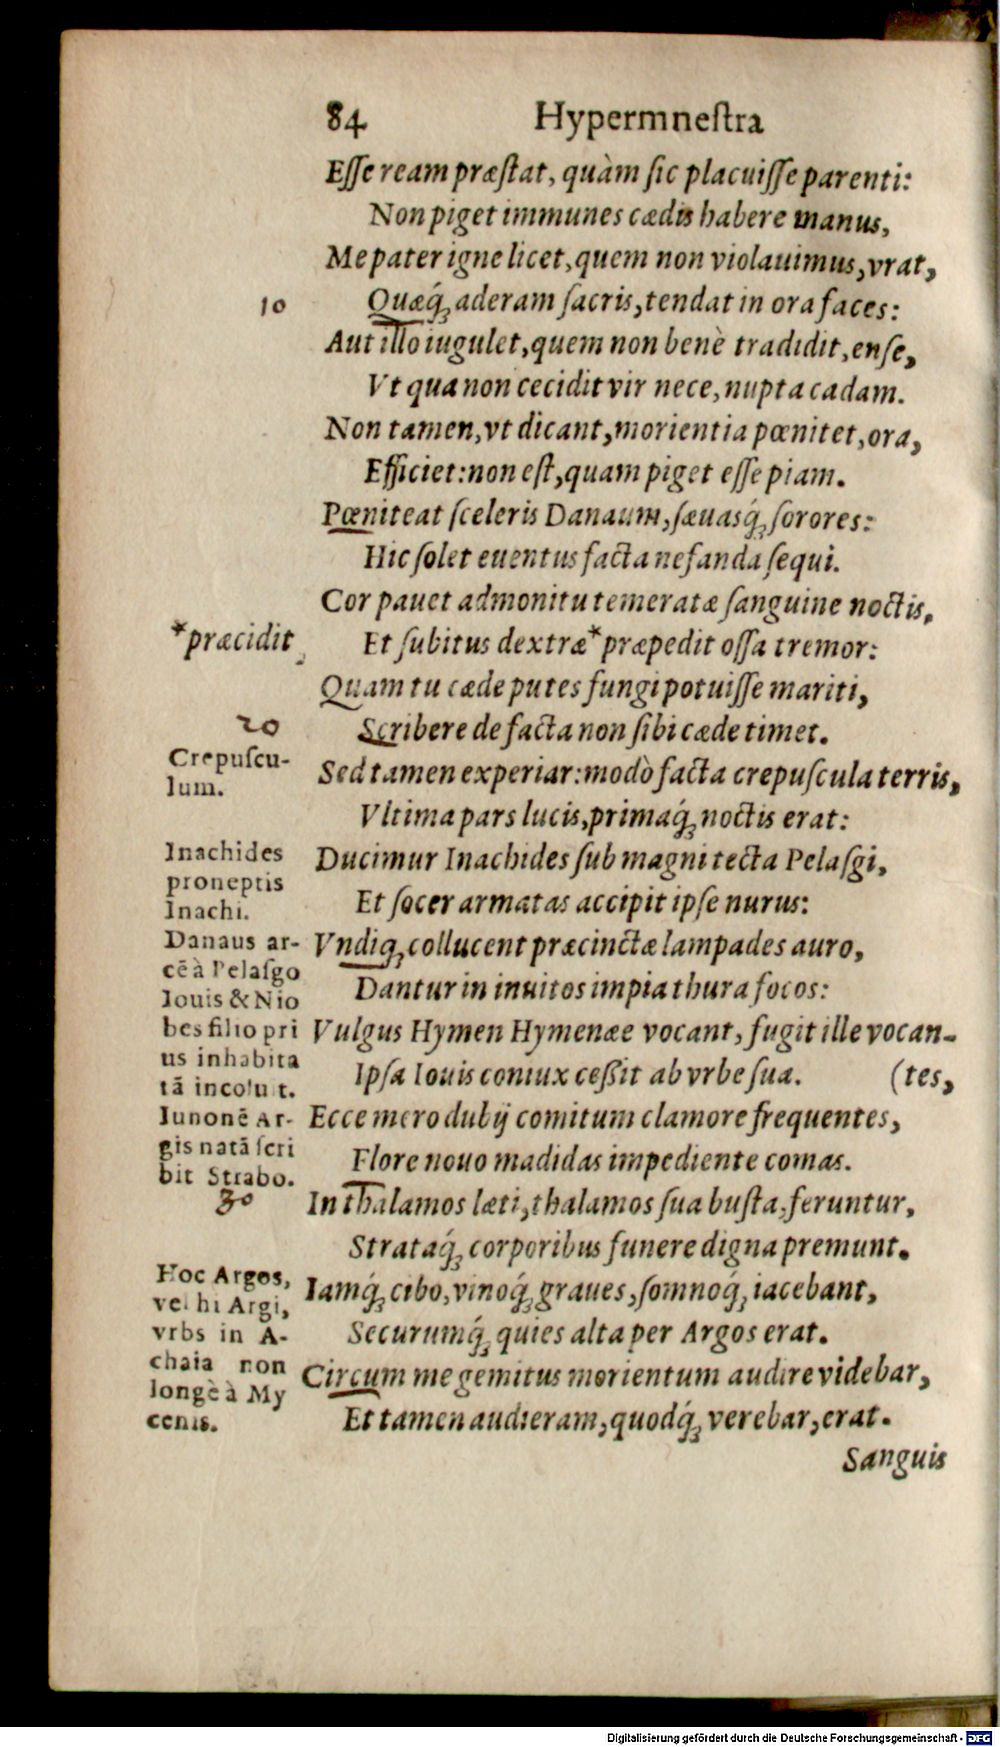 84 Hypermneſtra
Eſſe ream præſtat, quàm ſic placuiſſe parenti:
Non piget immunes cædis habere manus,
Me pater igne licet, quem non violauimus, vrat,
10 Quæq́; aderam ſacris, tendat in ora faces:
Aut illo iugulet, quem non benè tradidit, enſe,
Vt qua non cecidit vir nece, nupta cadam.
Non tamen, vt dicant, morientia pœnitet, ora,
Efficiet: non eſt, quam piget eſſe piam.
Pœniteat ſceleris Danaum, ſæuasq́; ſorores:
Hic ſolet euentus facta nefanda ſequi.
Cor pauet admonitu temeratæ ſanguine noctis,
*præcidit Et ſubitus dextræ * præpedit oſſa tremor:
Quam tu cæde putes fungi potuiſſe mariti,
20 Scribere de facta non ſibi cæde timet.
Crepuſcu-
lum.
Sed tamen experiar: modò facta crepuſcula terris,
Vltima pars lucis, primaq́; noctis erat:
Inachides
proneptis
Inachi.
Ducimur Inachides ſub magni tecta Pelaſgi,
Et ſocer armatas accipit ipſe nurus:
Danaus ar-
cẽ à Pelaſgo
Iouis & Nio
bes filio pri
us inhabita
tã incoluit.
Iunonẽ Ar-
gis natã ſcri
bit Strabo.
Vndiq; collucent præcinctæ lampades auro,
Dantur in inuitos impia thura focos:
Vulgus Hymen Hymenæe vocant, fugit ille vocan-
Ipſa Iouis coniux ceßit ab vrbe ſua. (tes,
Ecce mero dubij comitum clamore frequentes,
Flore nouo madidas impediente comas.
30 In thalamos læti, thalamos ſua buſta, feruntur,
Strataq́; corporibus funere digna premunt.
Hoc Argos,
vel hi Argi,
vrbs in A-
chaia non
longè à My
cenis.
Iamq́; cibo, vinoq́; graues, ſomnoq́; iacebant,
Securumq́; quies alta per Argos erat.
Circum me gemitus morientum audire videbar,
Et tamen audieram, quodq́; verebar, erat.
Sanguis
Digitalisierung gefördert durch die Deutsche Forschungsgemeinschaft - DFG